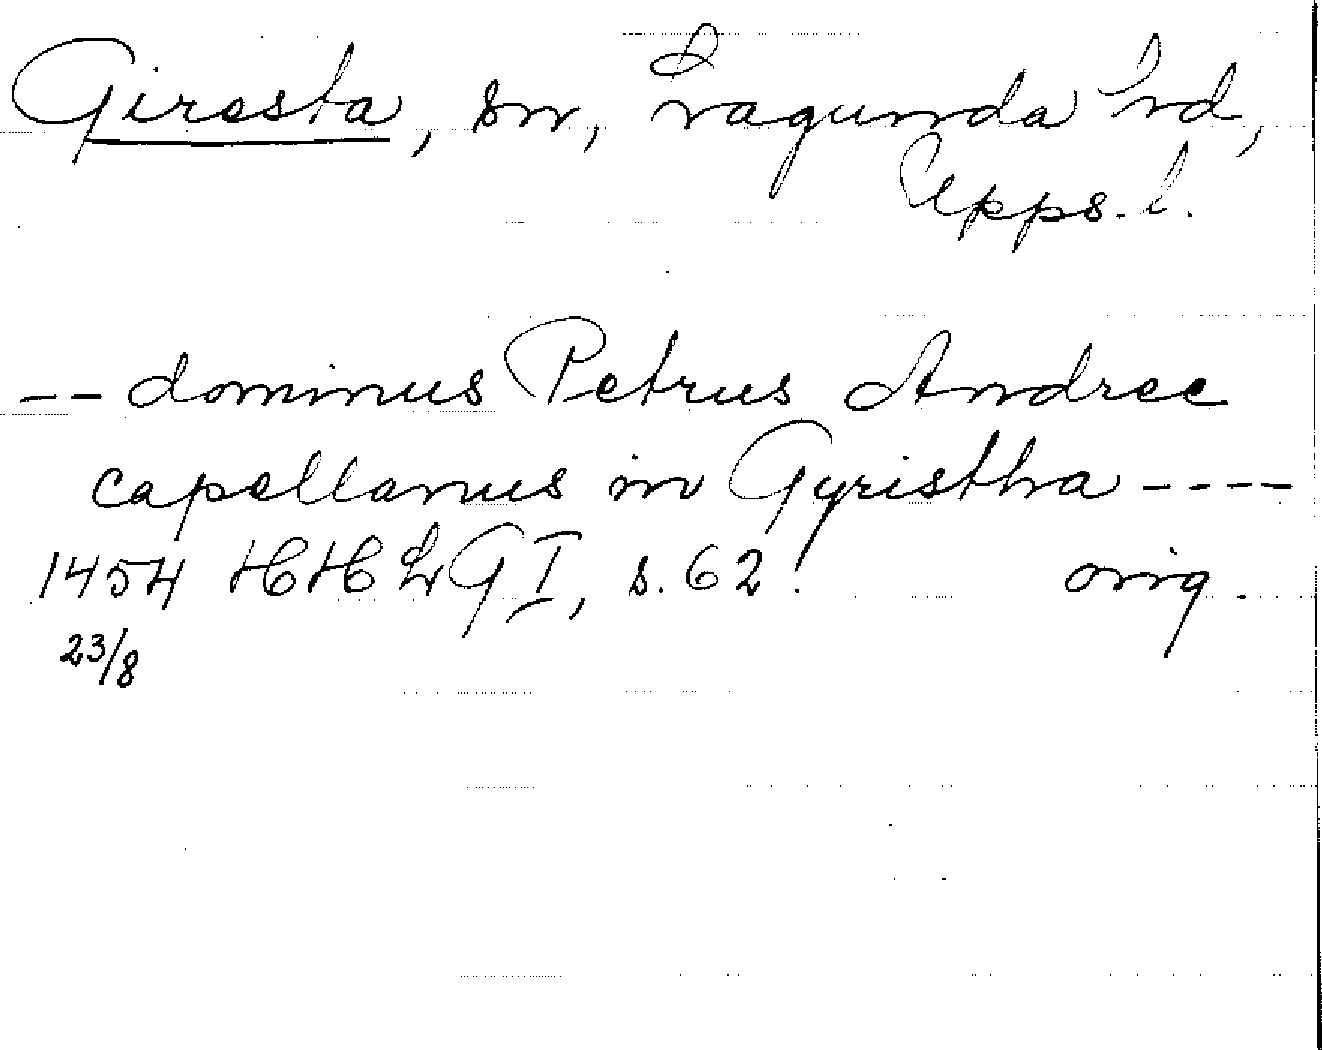 Giresta, sn, Lagunda hd,
Upps. l.
-- dominus Petrus Andree
capellanus in Gyristha ----
1454 HH LG I, s. 62. orig.
23/8